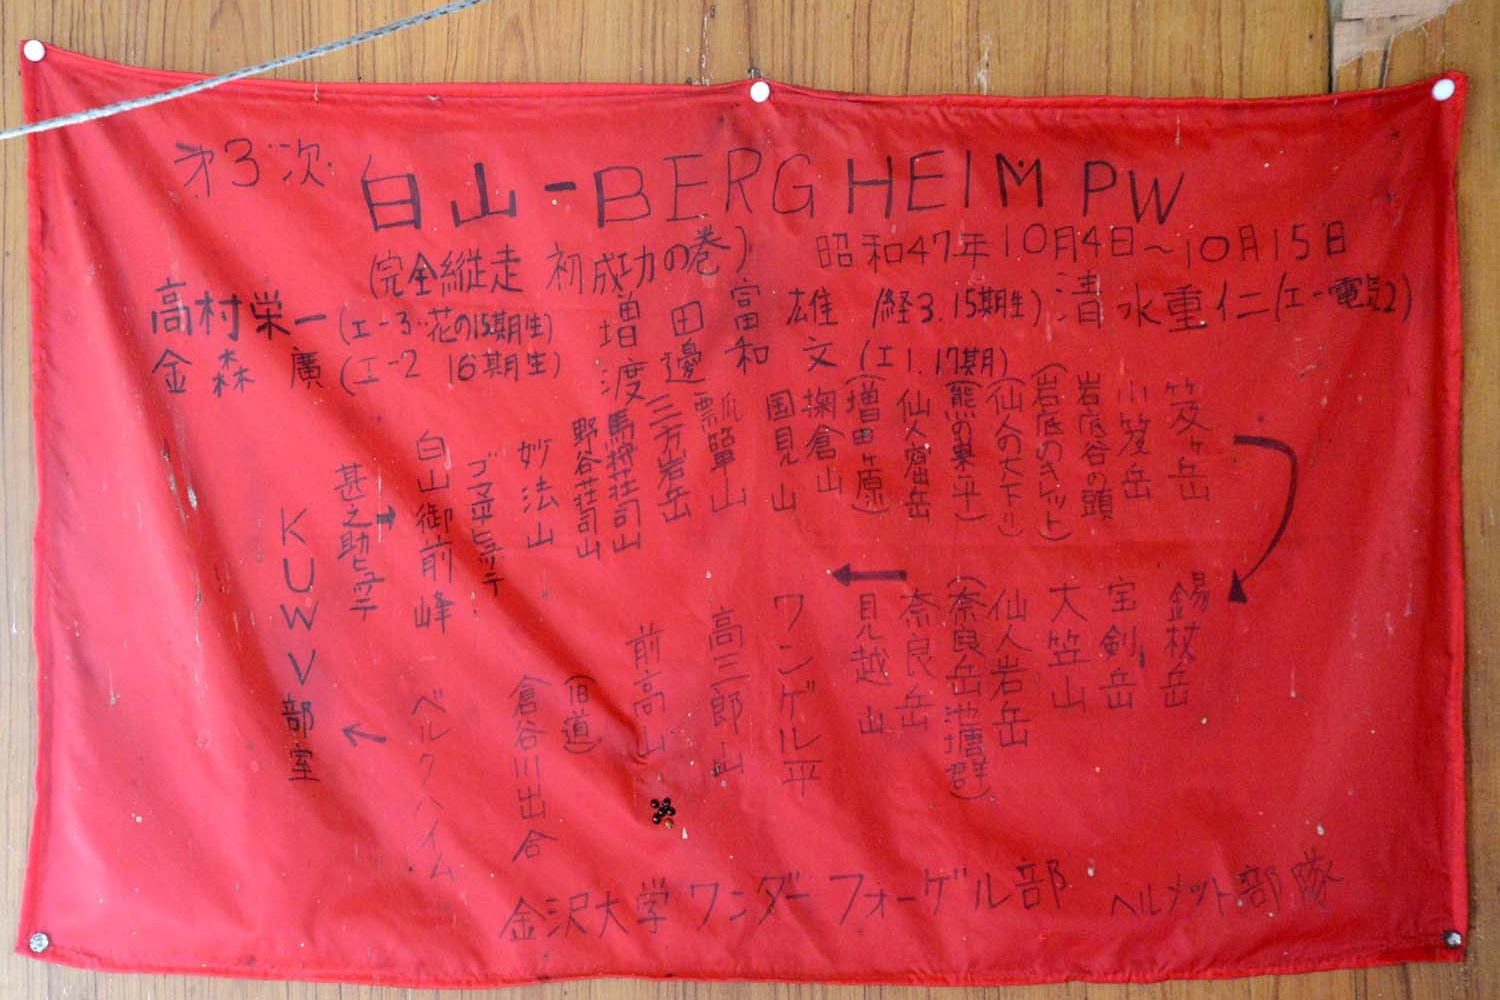 才3次
白山-BERGHEIM PW
(完全縦走 初成功の巻)
昭和47年10月4日~10月15日
高村栄一(エ-3・花の15期生)
増田富雄(経3.15期生)
清水重仁(エ-電気2)
金森廣(エ-2 16期生)
渡邊和文(エ1.17期)
KUWV部室
甚之助ヒュッテ
白山御前峰
ゴマ平ヒュッテ
妙法山
野谷荘司山
馬狩荘司山
三方岩岳
瓢箪山
国見山
掬倉山
(増田ヶ原)
仙人窟岳
(熊の巣平)
(仙人の大下り)
(岩底のキレット)
岩底谷の頭
小笈岳
笈ヶ岳
錫杖岳
宝剣岳
大笠山
仙人岩岳
(奈良岳池塘群)
奈良岳
見越山
ワンゲル平
高三郎山
前高山
(旧道)
倉谷川出合
ベルクハイム
金沢大学ワンダーフォーゲル部
ヘルメット部隊